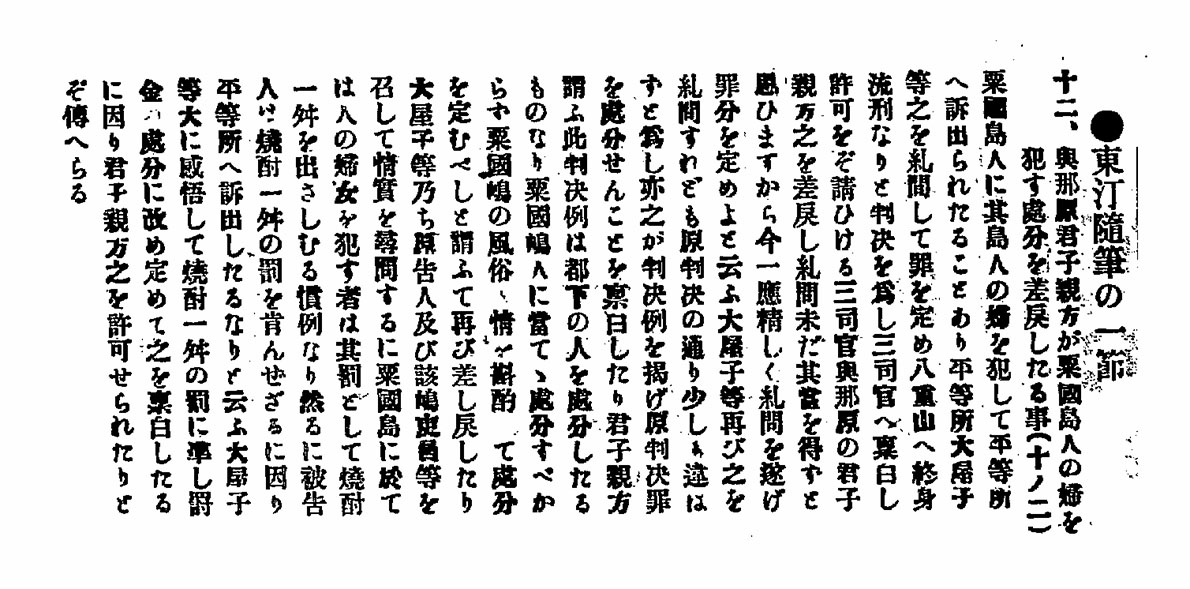 ●東汀隨筆の一節
十二、與那原君子親方が粟國島人の婦を
犯す處分を差戻したる事(十ノ二)
粟國島人に其島人の婦を犯して平等所
へ訴出られたることあり平等所大屋子
等之を糺問して罪を定め八重山へ終身
流刑なりと判决を爲し三司官へ稟白し
許可をぞ請ひける三司官與那原の君子
親方之を差戻し糺問未だ其當を得ずと
思ひますから今一應精しく糺問を遂げ
罪分を定めよと云ふ大屋子等再び之を
糺問すれども原判决の通り少しも違は
ずと爲し亦之が判决例を揭げ原判决罪
を處分せんことを稟白したり君子親方
謂ふ此判决例は都下の人を處分したる
ものなり粟國嶋人に當てゝ處分すべか
らず粟國嶋の風俗、情を斟酌 て處分
を定むべしと謂ふて再び差し戻したり
大屋子等乃ち原告人及び該嶋吏員等を
召して情實を尋問するに粟國島に於て
は人の婦女を犯す者は其罰として燒酎
一舛を出さしむる慣例なり然るに被告
人は燒酎一舛の罰を肯んぜざるに因り
平等所へ訴出したるなりと云ふ大屋子
等大に感悟して燒酎一舛の罰に準し罰
金の處分に改め定めて之を稟白したる
に因り君子親方之を許可せられたりと
ぞ傳へらる